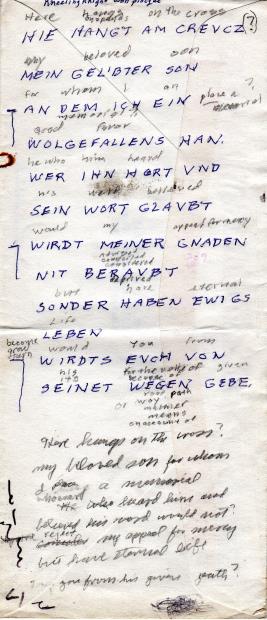 Kneeling Knight won plaque
Here hangs on the cross
HIE HANGT AM CREVCZ ?
my beloved son
MEIN GELIBTER SON
for whom I an place a ?
AN DEM ICH EIN memorial
good favor
WOLGEFALLENS HAN.
he who him heard
WER IHN HORT VND
his word believed
SEIN WORT GLAVBT
would my appeal for mercy
WIRDT MEINER GNADEN
NIT BERAVBT
but have eternal
SONDER HABEN EWIGS
Life
LEBEN
become would you from
WIRDTS EVCH VON
his given
its
SEINET WEGEN GEBE.
path
or way
means
Here hangs on the cross?
my beloved son for whom
I place a memorial
He who heard him and
believed his word would not?
reject my appeal for mercy
but have eternal life
you from his given path?